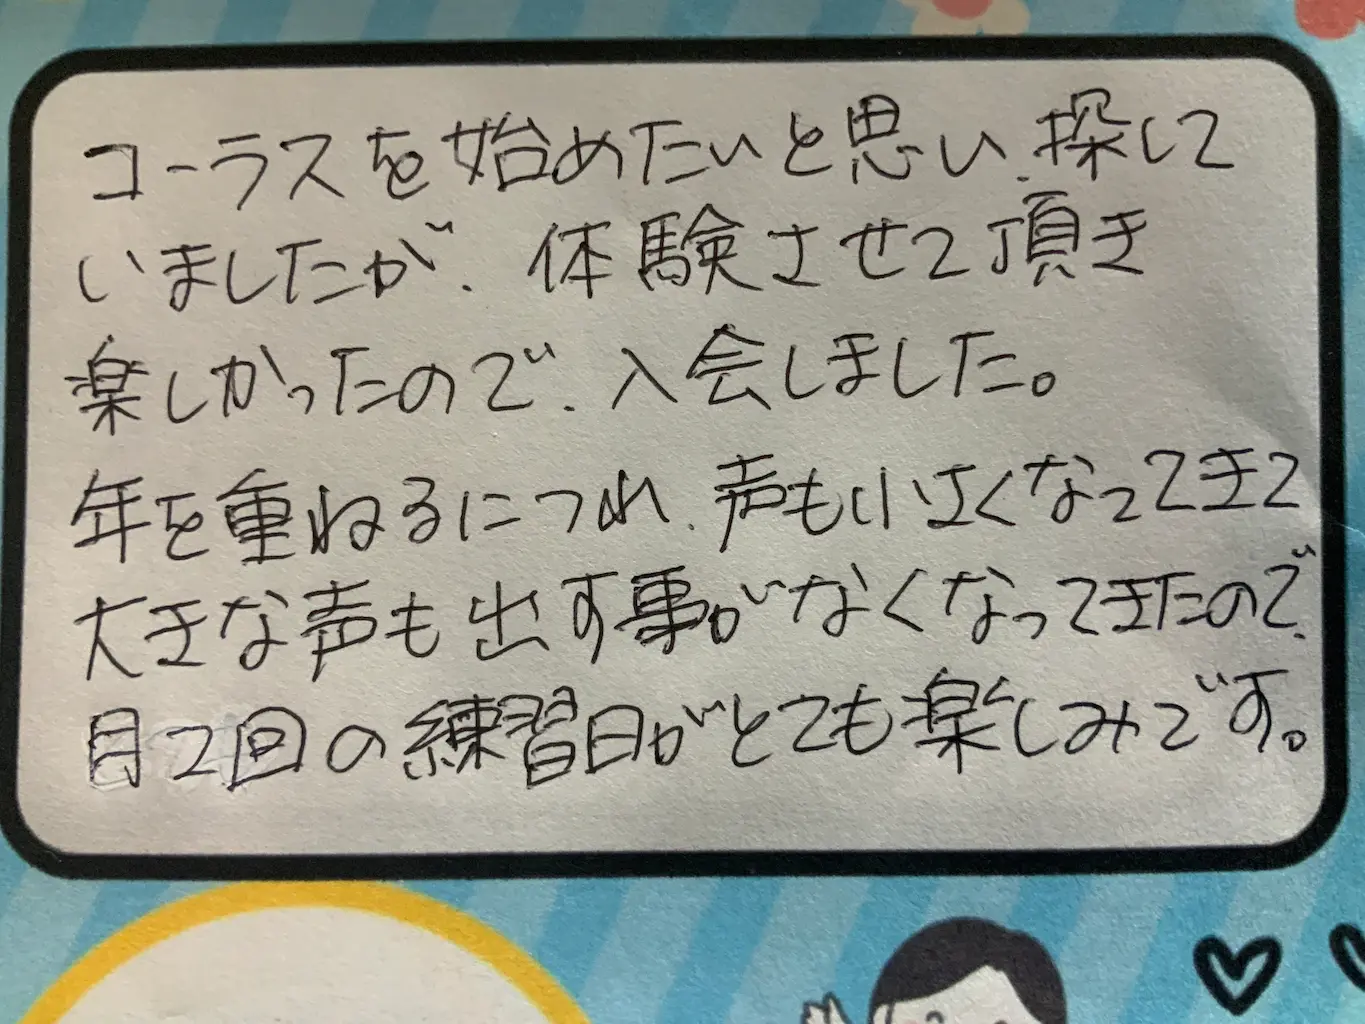 コーラスを始めたいと思い、探して
いましたが、体験させて頂き
楽しかったので、入会しました。
年を重ねるにつれ、声も小さくなってきて
大きな声も出す事がなくなってきたので、
月2回の練習日がとても楽しみです。